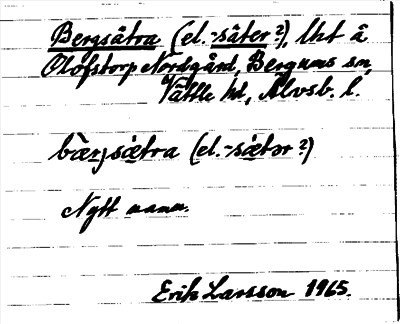 Bergsätra (el. -säter?), lht å
Olofstorp Nordgård, Bergums sn,
Vättle hd, Älvsb. l.
bær)sætra (el. -sætər?)
Nytt namn.
Erik Larsson 1965.